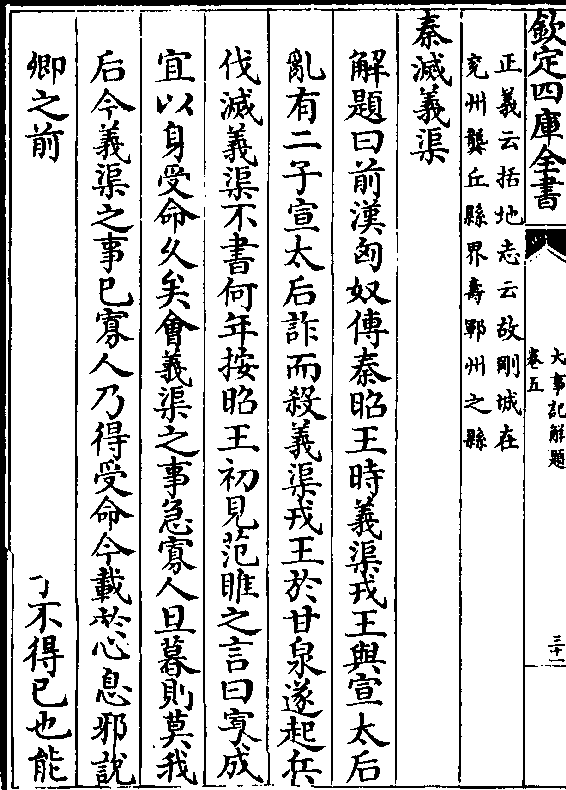 欽定四庫全書
大事記解題
卷五
正義云括地志云故剛城在
兖州龔丘縣界壽鄆州之縣
秦滅義渠
解題曰前漢匈奴傳秦昭王時義渠戎王與宣太后
亂有二子宣太后詐而殺義渠戎王於甘泉遂起兵
伐滅義渠不書何年按昭王初見范睢之言曰成
宜以身受命久矣會義渠之事急寡人旦暮則莫我
后今義渠之事已寡人乃得受命今載於心息邪說
卿之前
不得已也能